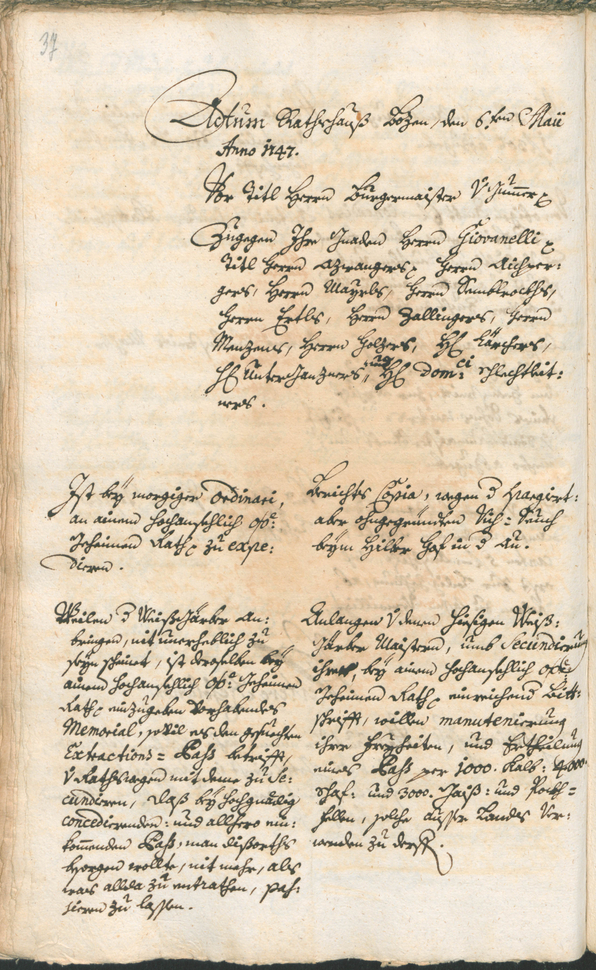 37
Actum Rathshauß Bozen, den 6.ten Maii
Anno 1747.
Vor Titl Herrn Burgermaister v: Zummer
Zugegen Ihro Gnaden Herrn Giovanelli
Titl Herrn Azwangers, Herrn Aichper:
gers, Herrn Mayrls, Herrn
Herrn Ertls, Herrn Zallingers, Herrn
Menzens, Herrn Holzers, H: Kärchers,
H: Unterganzners, und H: Domci Schlechtleit:
ners.
Ist bey morgiger Ordinari,
an ainem hochansehlich Oö:
Geheimen Rath zu expe:
dieren.
Berichts Copia, wegen d graszirt:
aber ohngegründten Vich-Seuch
beym Hilber Hof in d Au.
Weilen d Weißgärber an:
bringen, nit unerheblich zu
seyn scheinet, ist derselben bey
ainem hochansehlich Oö: Geheimen
Rath einzugeben vorhabendes
Memorial, sovil es den gesuechten
Extractions-Pass betrifft,
v Rathswegen mit deme zu Se:
cundieren, daß bey hochgnädig
concedierenden: und allhero ein:
kommenden Paß, man dißorths
besorgen wollte, nit mehr, als
was allda zu entrathen, pas:
sieren zu lassen.
Anlangen v denen hiesigen Weiß:
Gärber Maistern, umb Secundierung
ihrer, bey ainem hochansehlich Oö:
Geheimen Rath einreichend Bitt:
schrifft, willen manutenierung
ihrer Freyheiten, und Ertheilung
eines Pass per 1000. Kalb: 4000
Schaf: und 3000. Gaiß: und Pockh-
fellen, solche ausser Landes ver:
wenden zu derffen.